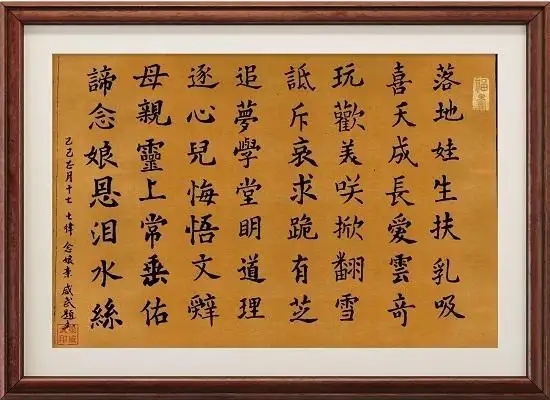 落地娃生扶乳吸
喜天成長愛雲奇
玩歡美咲掀翻雪
詆斥哀求跪有芝
追夢學堂明道理
逐心兒悔悟文辭
母親靈上常垂佑
諦念娘恩泪水絲
乙巳正月十七 七律 念娘亲 咸武題